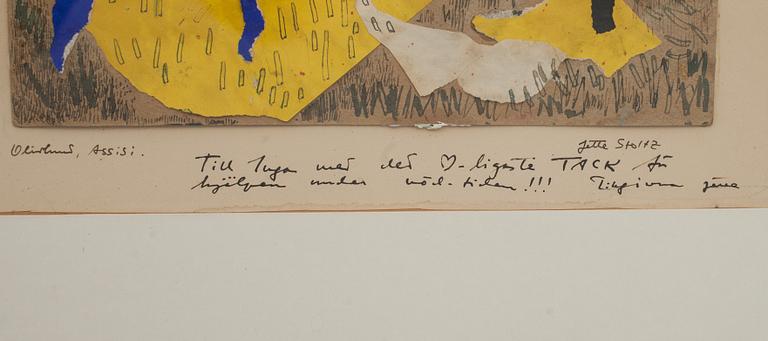 Olivlund, Assisi.
Jette Stoltz
Till Inga med det ♡-ligaste TACK för
hjälpen under nöd-tiden!!!